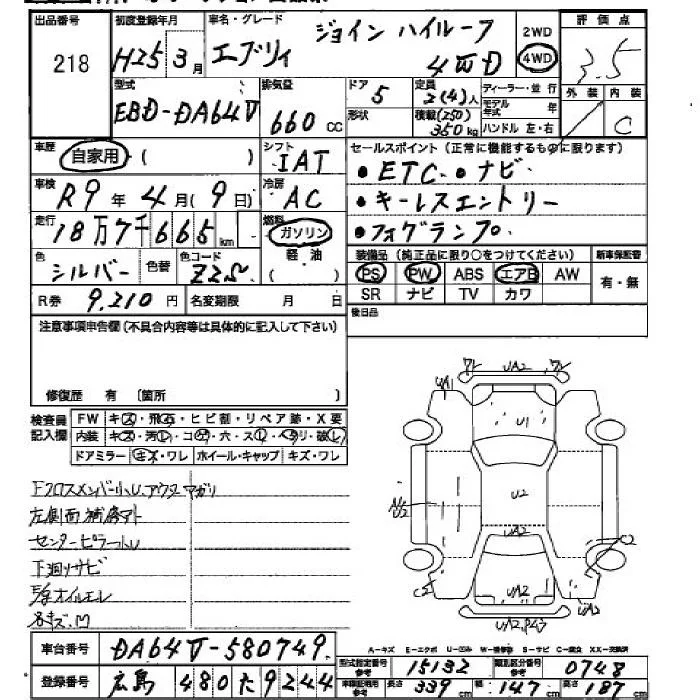 出品番号 初度登録年月 車名・グレード 2WD 評価点
218 H25年3月 エブリィ ジョイン ハイルーフ 4WD 4WD 3.5
型式 排気量 ドア 定員 ディーラー・並行 外装 内装
EBD-DA64V 660cc 5 2(4)人 モデル年式 年 C
形状 積載(250) 350kg ハンドル 左・右
車歴 自家用 ( ) シフト IAT セールスポイント(正常に機能するものに限ります)
車検 R9年4月(9日) 冷房 AC ・ETC・ナビ
・キーレスエントリー
走行 18万7千665km 燃料 ガソリン ・フォグランプ.
軽油
色 シルバー 色替 色コード Z2S 装備品(純正品に限り○をつけてください) 新車保証書
PS PW ABS エアB AW 有・無
R券 9,210円 名変期限 月 日 SR ナビ TV カワ
注意事項申告欄(不具合内容等は具体的に記入して下さい) 後日品
修復歴 有 〔箇所 〕
検査員記入欄 FW キズ・飛石・ヒビ割・リペア跡・X要
内装 キズ・汚レ・コゲ・穴・スレ・ヘタリ・破レ
ドアミラー キズ・ワレ ホイール・キャップ キズ・ワレ
Fクロスメンバー小U、アウターマガリ
左側面補修アト
センターピラー小U
下廻リサビ
オイルモレ
各キズ、凹
ワレ UA2 ワレ
UA1
U1
U2
UA2
UA2
C2
C2
UA2
UA2,P43
A-キズ E-エクボ U-凹み W-補修跡 S-サビ C-腐食 XX-交換済
車台番号 DA64V-580749. 型式指定番号 参考 15132 類別区分番号 参考 0748
登録番号 広島 480 た 9244 車検証利用 参考 長さ 339cm 幅 147cm 高さ 187cm